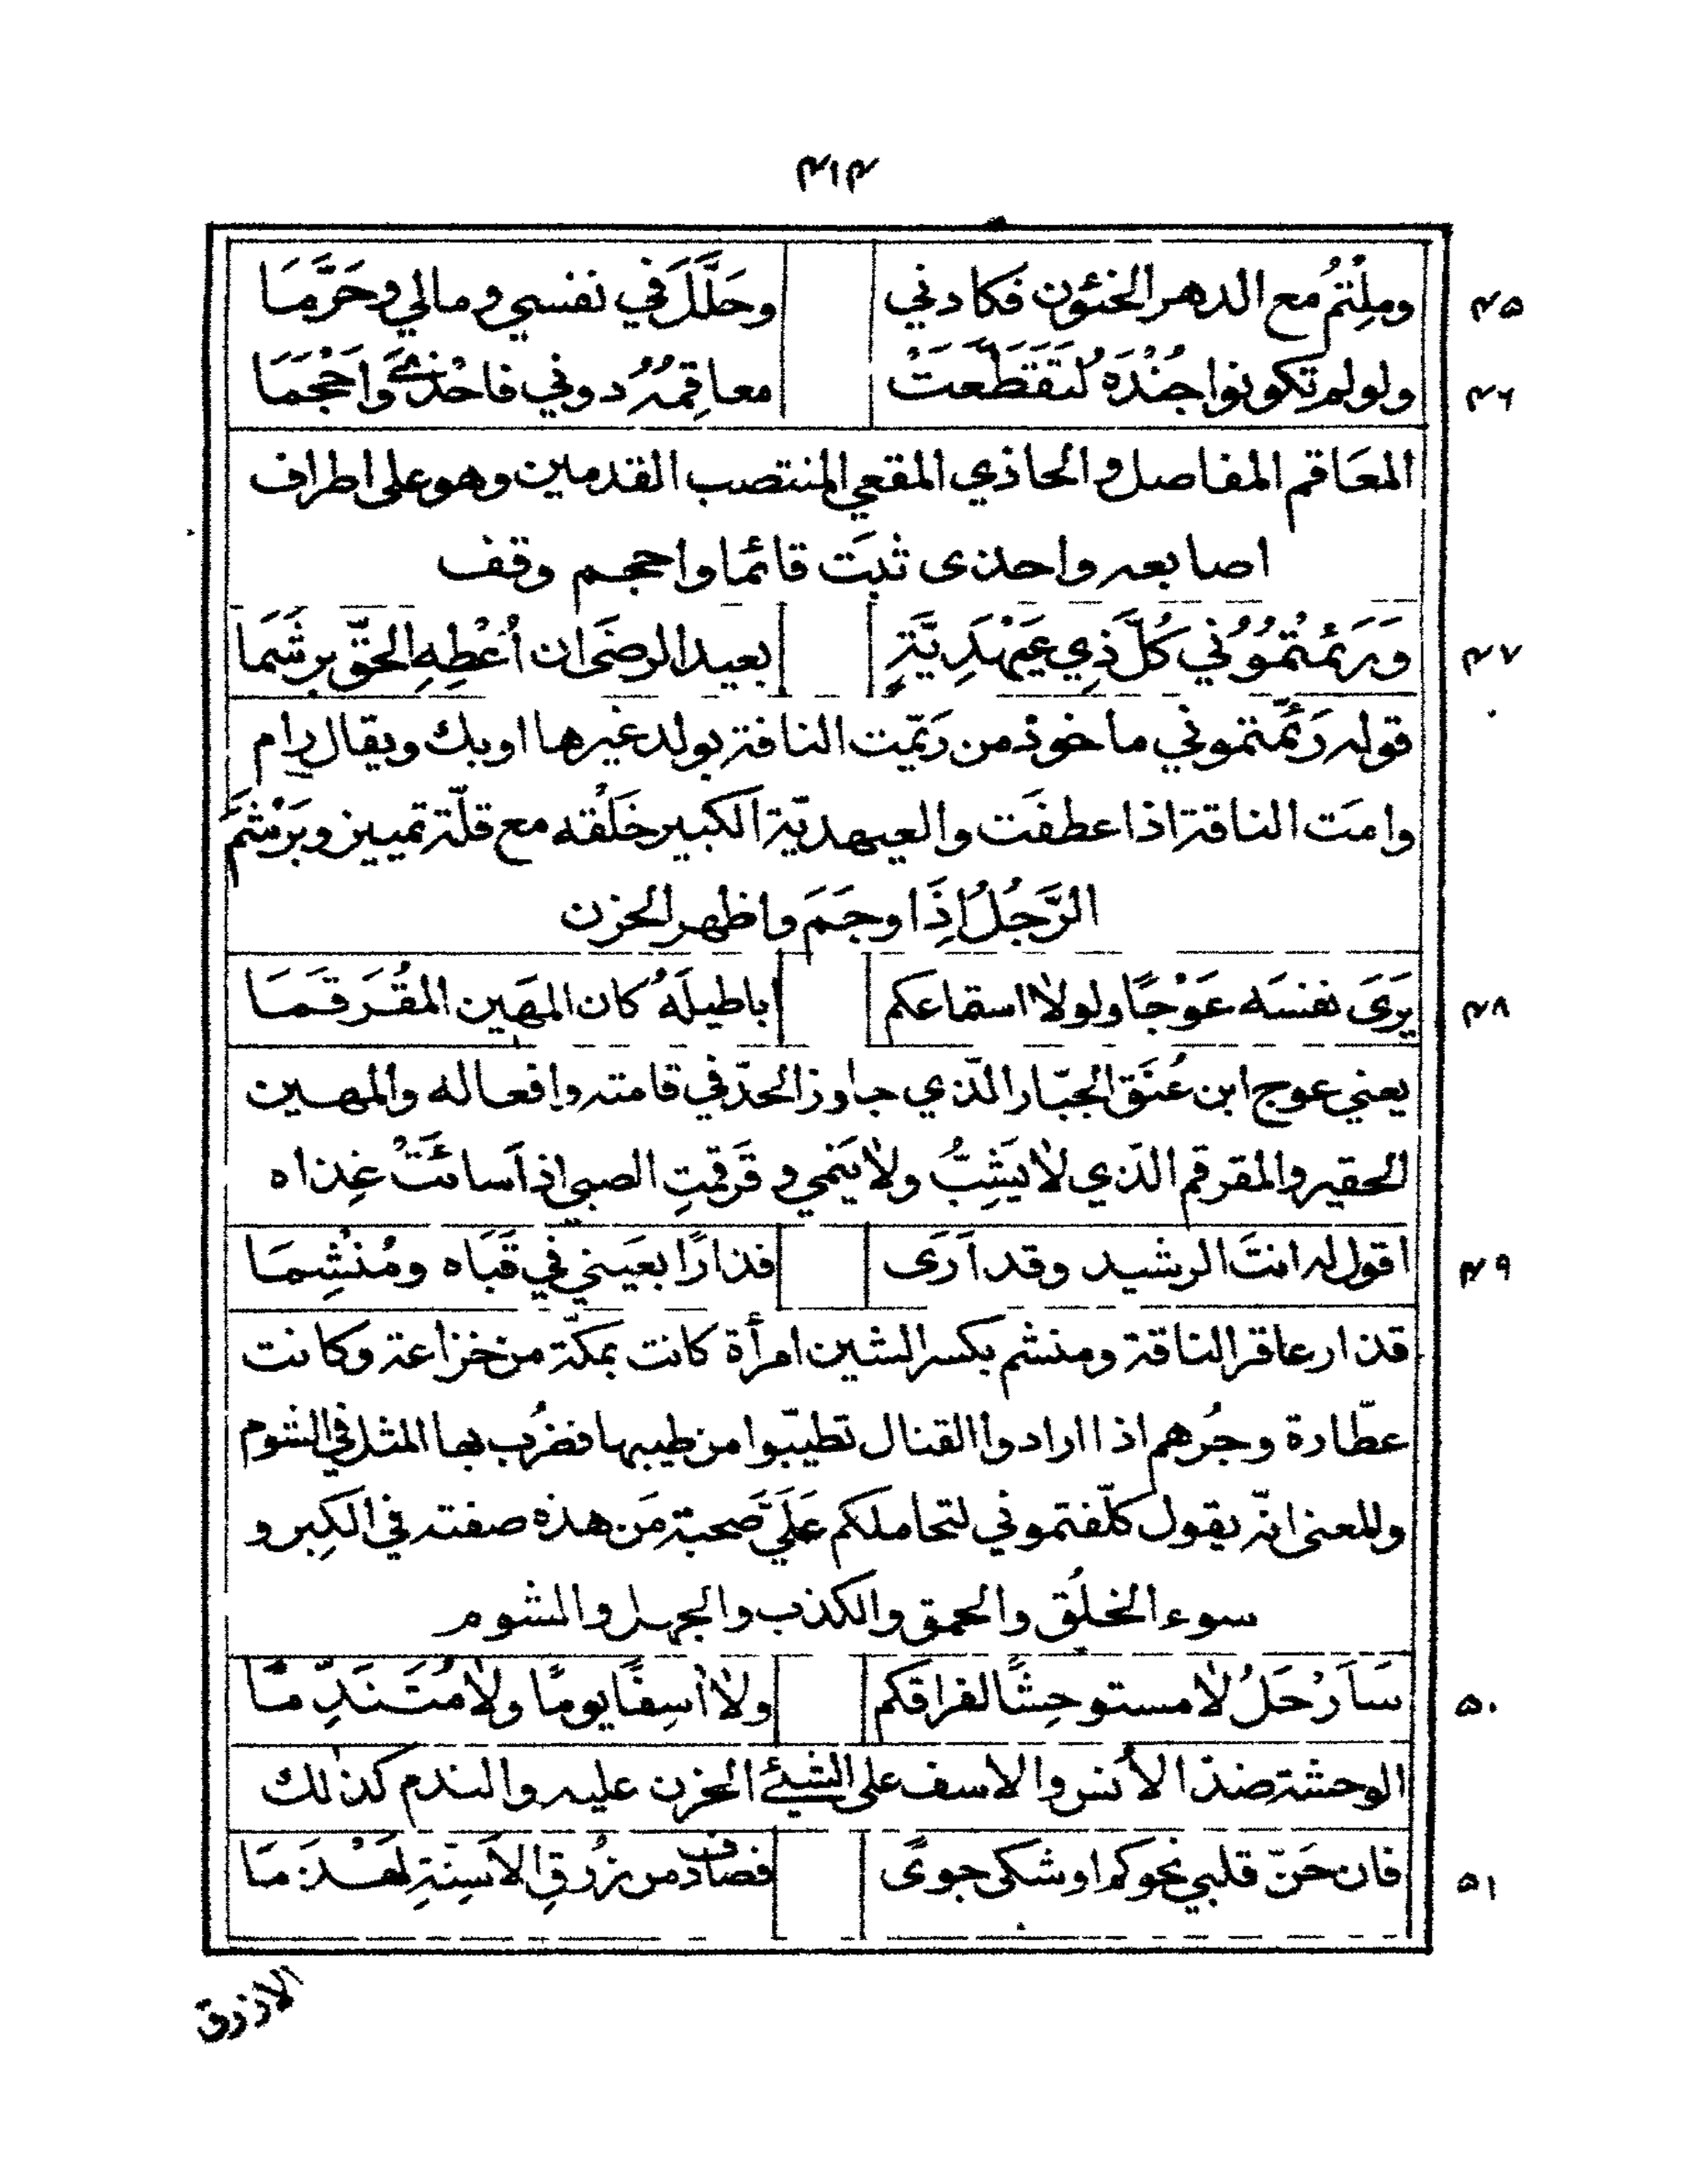 ۴۱۴
۴۵ ومِلْتُم مع الدهر الخئون فكادني وحَلَّلَ في نفسي ومالي وحَرَّمَا
۴۶ ولولم تكونوا جُنْدَهُ لَتَقَطَّعَتْ معاقِمُهُ دوني فاحْذَى وَاَحْجَمَا
المعَاقم المفاصل والحاذي المقعي المنتصب القدمين وهو على اطراف
اصابعه واحذى ثبَت قائما واحجم وقف
۴۷ وَرَئمْتُمُوُني كُلَّ ذِي عَيْهَدِيَّةٍ بعيد الرضَى ان اُعْطِهِ الحَقّ برشَمَا
قوله رَئمّتموني ماخوذ من رَتمّيت الناقة بولد غيرها او بك ويقال رام
وامَت الناقة اذا عطفَت والعيهديّة الكبير خَلْقه مع قلّة تمييز وبَرْشَمَ
الرَّجُلُ اِذَا وجَمَ واظهر الحزن
۴۸ يرَى نفسَه عَوْجًا ولولا استماعكم اباطيلَهُ كان المهَين المقُرَقَمَا
يعني عوج ابن عُنَق الجبّار الّذي جاوز الحدّ في قامته وافعاله والمهين
الحقير والمقرقم الّذي لا يَشِبُّ ولا يَنمي وقَرقمتِ الصبي اذ آسائَتْ غِذاه
۴۹ اقول له انتَ الرشيد وقد اَرَى فذارًا بعيَني في قَبَاه ومُنْشِمَا
قذار عاقر الناقة ومنشم بكسر الشين امرأة كانت بمكّة من خزاعة وكانت
عطّارة وجُرهم اذا ارادوا القتال تطيّبوا من طيبها فضُرب بها المثل في الشوم
والمعنى انّه يقول كلّفتموني لتحاملكم عَلَيَّ صَحبة مَن هذه صفته في الكِبر و
سوء الخلُق والحمق والكذب والجهل والشوم
۵۰ سَاَرْحَلُ لا مستوحِشًا لفراقكم ولا اٰسِفًا يومًا ولا مُتَنَدِّمًا
الوحشة ضذ الاُنس والاسف على الشيئ الحزن عليه والندم كذٰلك
۵۱ فان حَنّ قلبي نحوكم او شكى جوىً فصادف من زُرقِ الاَسِنّةِ لَهْذَمَا
الازرق